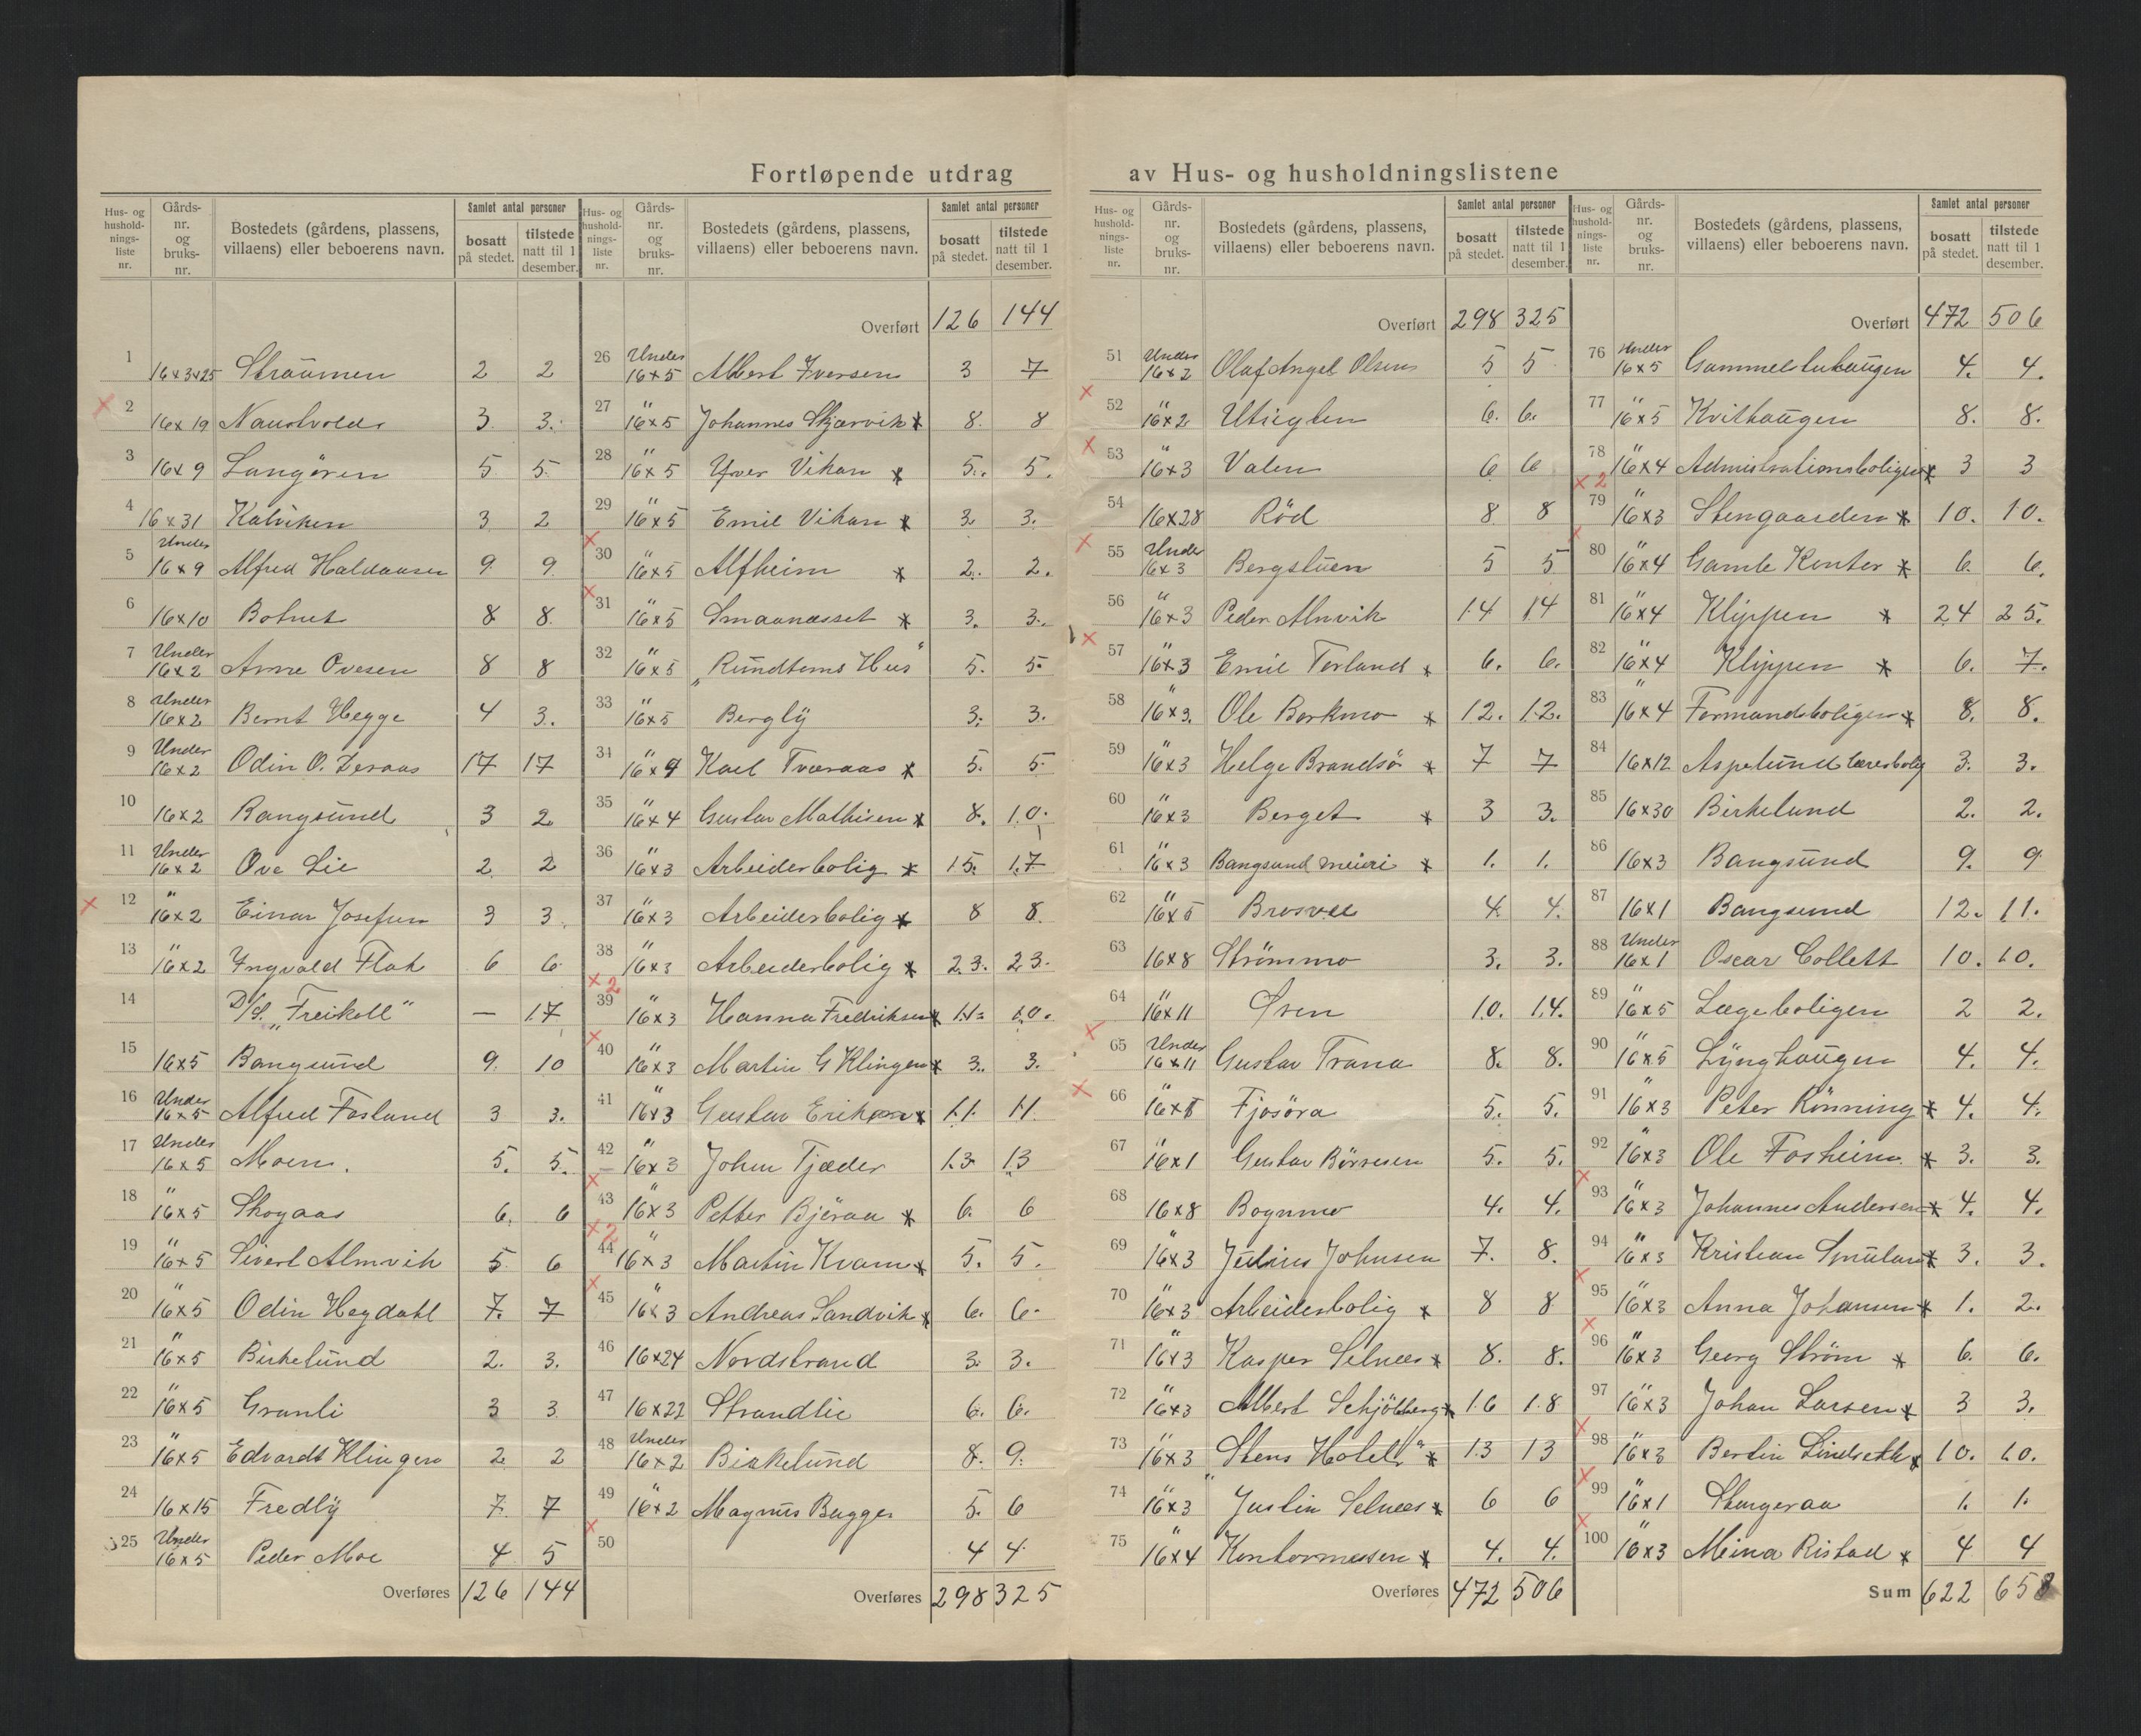 Fortløpende utdrag av Hus- og husholdningslistene
Hus- og hushold- nings- liste nr. Gårds- nr. og bruks- nr. Bostedets (gårdens, plassens, villaens) eller beboerens navn. Samlet antal personer bosatt på stedet. tilstede natt til 1 desember.
1 16x3x25 Straumen 2 2
2 16x19 Naustvold 3 3.
3 16x9 Langøren 5 5
4 16x31 Kalviken 3 2
5 Under 16x9 Alfred Haldaasen 9 9
6 16x10 Botnet 8 8
7 Under 16x2 Arne Ovesen 8 8
8 Under 16x2 Bernt Hegge 4 3.
9 Under 16x2 Odin O. 17 17
10 16x2 Bangsund 3 2
11 Under 16x2 Ove Lie 2 2
12 " 16x2 Einar Josefsen 3 3.
13 " 16x2 Ingvald Flak 6 6
14 D/S. „Freikoll" — 17
15 16x5 Bangsund 9 10
16 Under 16x5 Alfred Fosland 3 3.
17 Under 16x5 Moen. 5. 5.
18 " 16x5 Skogaas 6. 6
19 " 16x5 Sivert Almvik 5 6
20 " 16x5 Odin Hegdahl 7. 7
21 " 16x5 Birkelund 2. 3.
22 " 16x5 Granli 3 3
23 " 16x5 Edvardt Klingen 2 2
24 16x15 Fredly 7. 7
25 Under 16x5 Peder Moe 4 5
Overføres 126 144
Hus- og hushold- nings- liste nr. Gårds- nr. og bruks- nr. Bostedets (gårdens, plassens, villaens) eller beboerens navn. Samlet antal personer bosatt på stedet. tilstede natt til 1 desember.
Overført 126 144
26 Under 16x5 Albert Iversen 3 7
27 " 16x5 Johannes Skjærvik x 8. 8
28 " 16x5 Yver Vikan x 5. 5.
29 " 16x5 Emil Vikan x 3. 3.
30 " 16x5 Alfheim x 2. 2.
31 " 16x5 Smaanesset x 3. 3.
32 " 16x5 „Rundtoms Hus" 5. 5.
33 " 16x5 Bergly 3. 3.
34 " 16x9 Karl Tveraas x 5. 5.
35 " 16x4 Gustav Mathisen x 8. 10.
36 " 16x3 Arbeiderbolig x 15. 17
37 " 16x3 Arbeiderbolig x 8 8.
38 " 16x3 Arbeiderbolig x 23. 23.
x 2
39 " 16x3 Hanna Fredriksen x 11. 10.
40 " 16x3 Martin G Klingen x 3. 3.
41 " 16x3 Gustav Eriksen x 11. 11
42 " 16x3 Johan Tjæder 13 13
43 " 16x3 Petter Bjøraa x 6. 6
x 2
44 " 16x3 Martin Kvam x 5. 5.
45 " 16x3 Andreas Sandvik x 6. 6.
46 16x24 Nordstrand 3. 3.
47 16x22 Strandlie 6. 6.
48 Under 16x2 Birkelund 8. 9.
49 " 16x2 Magnus Bugge 5. 6
50 4 4
Overføres 298 325
Hus- og hushold- nings- liste nr. Gårds- nr. og bruks- nr. Bostedets (gårdens, plassens, villaens) eller beboerens navn. Samlet antal personer bosatt på stedet. tilstede natt til 1 desember.
Overført 298 325
51 Under 16x2 Olaf Angel Olsen 5 5
52 " 16x2 Utsiglen 6. 6.
53 " 16x3 Valen 6 6
54 16x28 Rød 8 8
55 Under 16x3 Bergstuen 5 5
56 " 16x3 Peder Almvik 14 14
57 " 16x3 Emil Torland x 6. 6.
58 " 16x3. Ole Borkmo x 12. 12.
59 " 16x3 Helge Brandsø x 7 7
60 " 16x3 Berget x 3 3.
61 " 16x3 Bangsund meieri x 1. 1.
62 " 16x5 4. 4.
63 16x8 Strømmo 3. 3.
64 " 16x11 Øren 10. 14.
65 Under 16x11 Gustav Trana 8. 8.
66 " 16x8 Fjøsøra 5. 5.
67 " 16x1 Gustav Børresen 5. 5.
68 16x8 Bognmo 4. 4.
69 " 16x3 Julius Johnsen 7. 8.
70 " 16x3 Arbeiderbolig x 8 8
71 " 16x3 Kasper Selnes x 8. 8.
72 " 16x3 Albert Schjølberg x 16 18
73 " 16x3 „Stens Hotell" x 13 13
74 " 16x3 Justin Selnes x 6 6
75 " 16x4 Kontormessen x 4. 4.
Overføres 472 506
Hus- og hushold- nings- liste nr. Gårds- nr. og bruks- nr. Bostedets (gårdens, plassens, villaens) eller beboerens navn. Samlet antal personer bosatt på stedet. tilstede natt til 1 desember.
Overført 472 506
76 Under 16x5 Gammelstuhaugen 4. 4.
77 " 16x5 Kvithaugen 8. 8.
78 " 16x4 Admistrationsboligen x 3 3
x 2
79 " 16x3 Stengaarden x 10. 10.
80 " 16x4 Gamle Kontor x 6. 6.
81 " 16x4 Klippen x 24 25.
82 " 16x4 Klippen x 6. 7.
83 " 16x4 Formandsboligen x 8. 8.
84 16x12 Aspelund lærerbolig 3. 3.
85 16x30 Birkelund 2. 2.
86 16x3 Bangsund 9. 9
87 16x1 Bangsund 12. 11.
88 Under 16x1 Oscar Collett 10. 10.
89 " 16x5 Lægeboligen 2 2.
90 " 16x5 Lynghaugen 4. 4.
91 " 16x3 Peter Rönning x 4. 4.
92 " 16x3 Ole Fosheim x 3. 3.
93 " 16x3 Johannes Andersen x 4. 4.
94 " 16x3 Kristian x 3. 3.
95 " 16x3 Anna Johansen x 1. 2.
96 " 16x3 Georg Strøm x 6. 6.
97 " 16x3 Johan Larsen x 3 3.
98 " 16x3 Bertin Lindseth x 10. 10.
99 " 16x1 1. 1.
100 " 16x3 Meina Ristad x 4 4
Sum 622 658